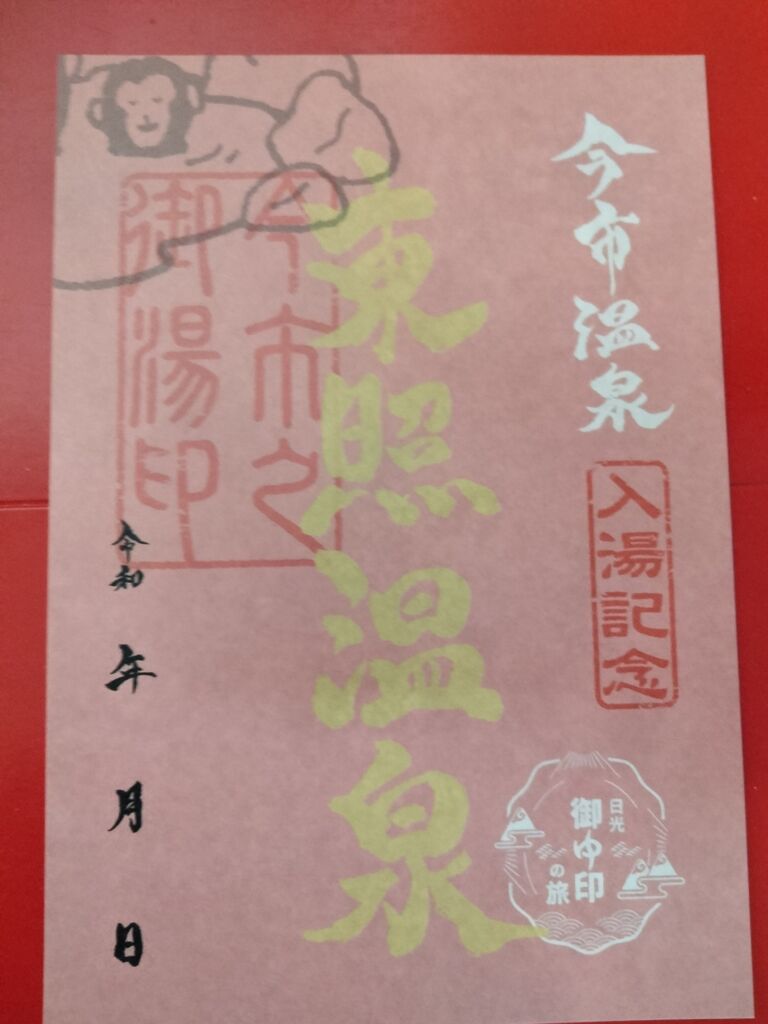 今市温泉
入湯記念
日光
御ゆ印
の旅
東照温泉
今市之
御湯印
令和
年
月
日